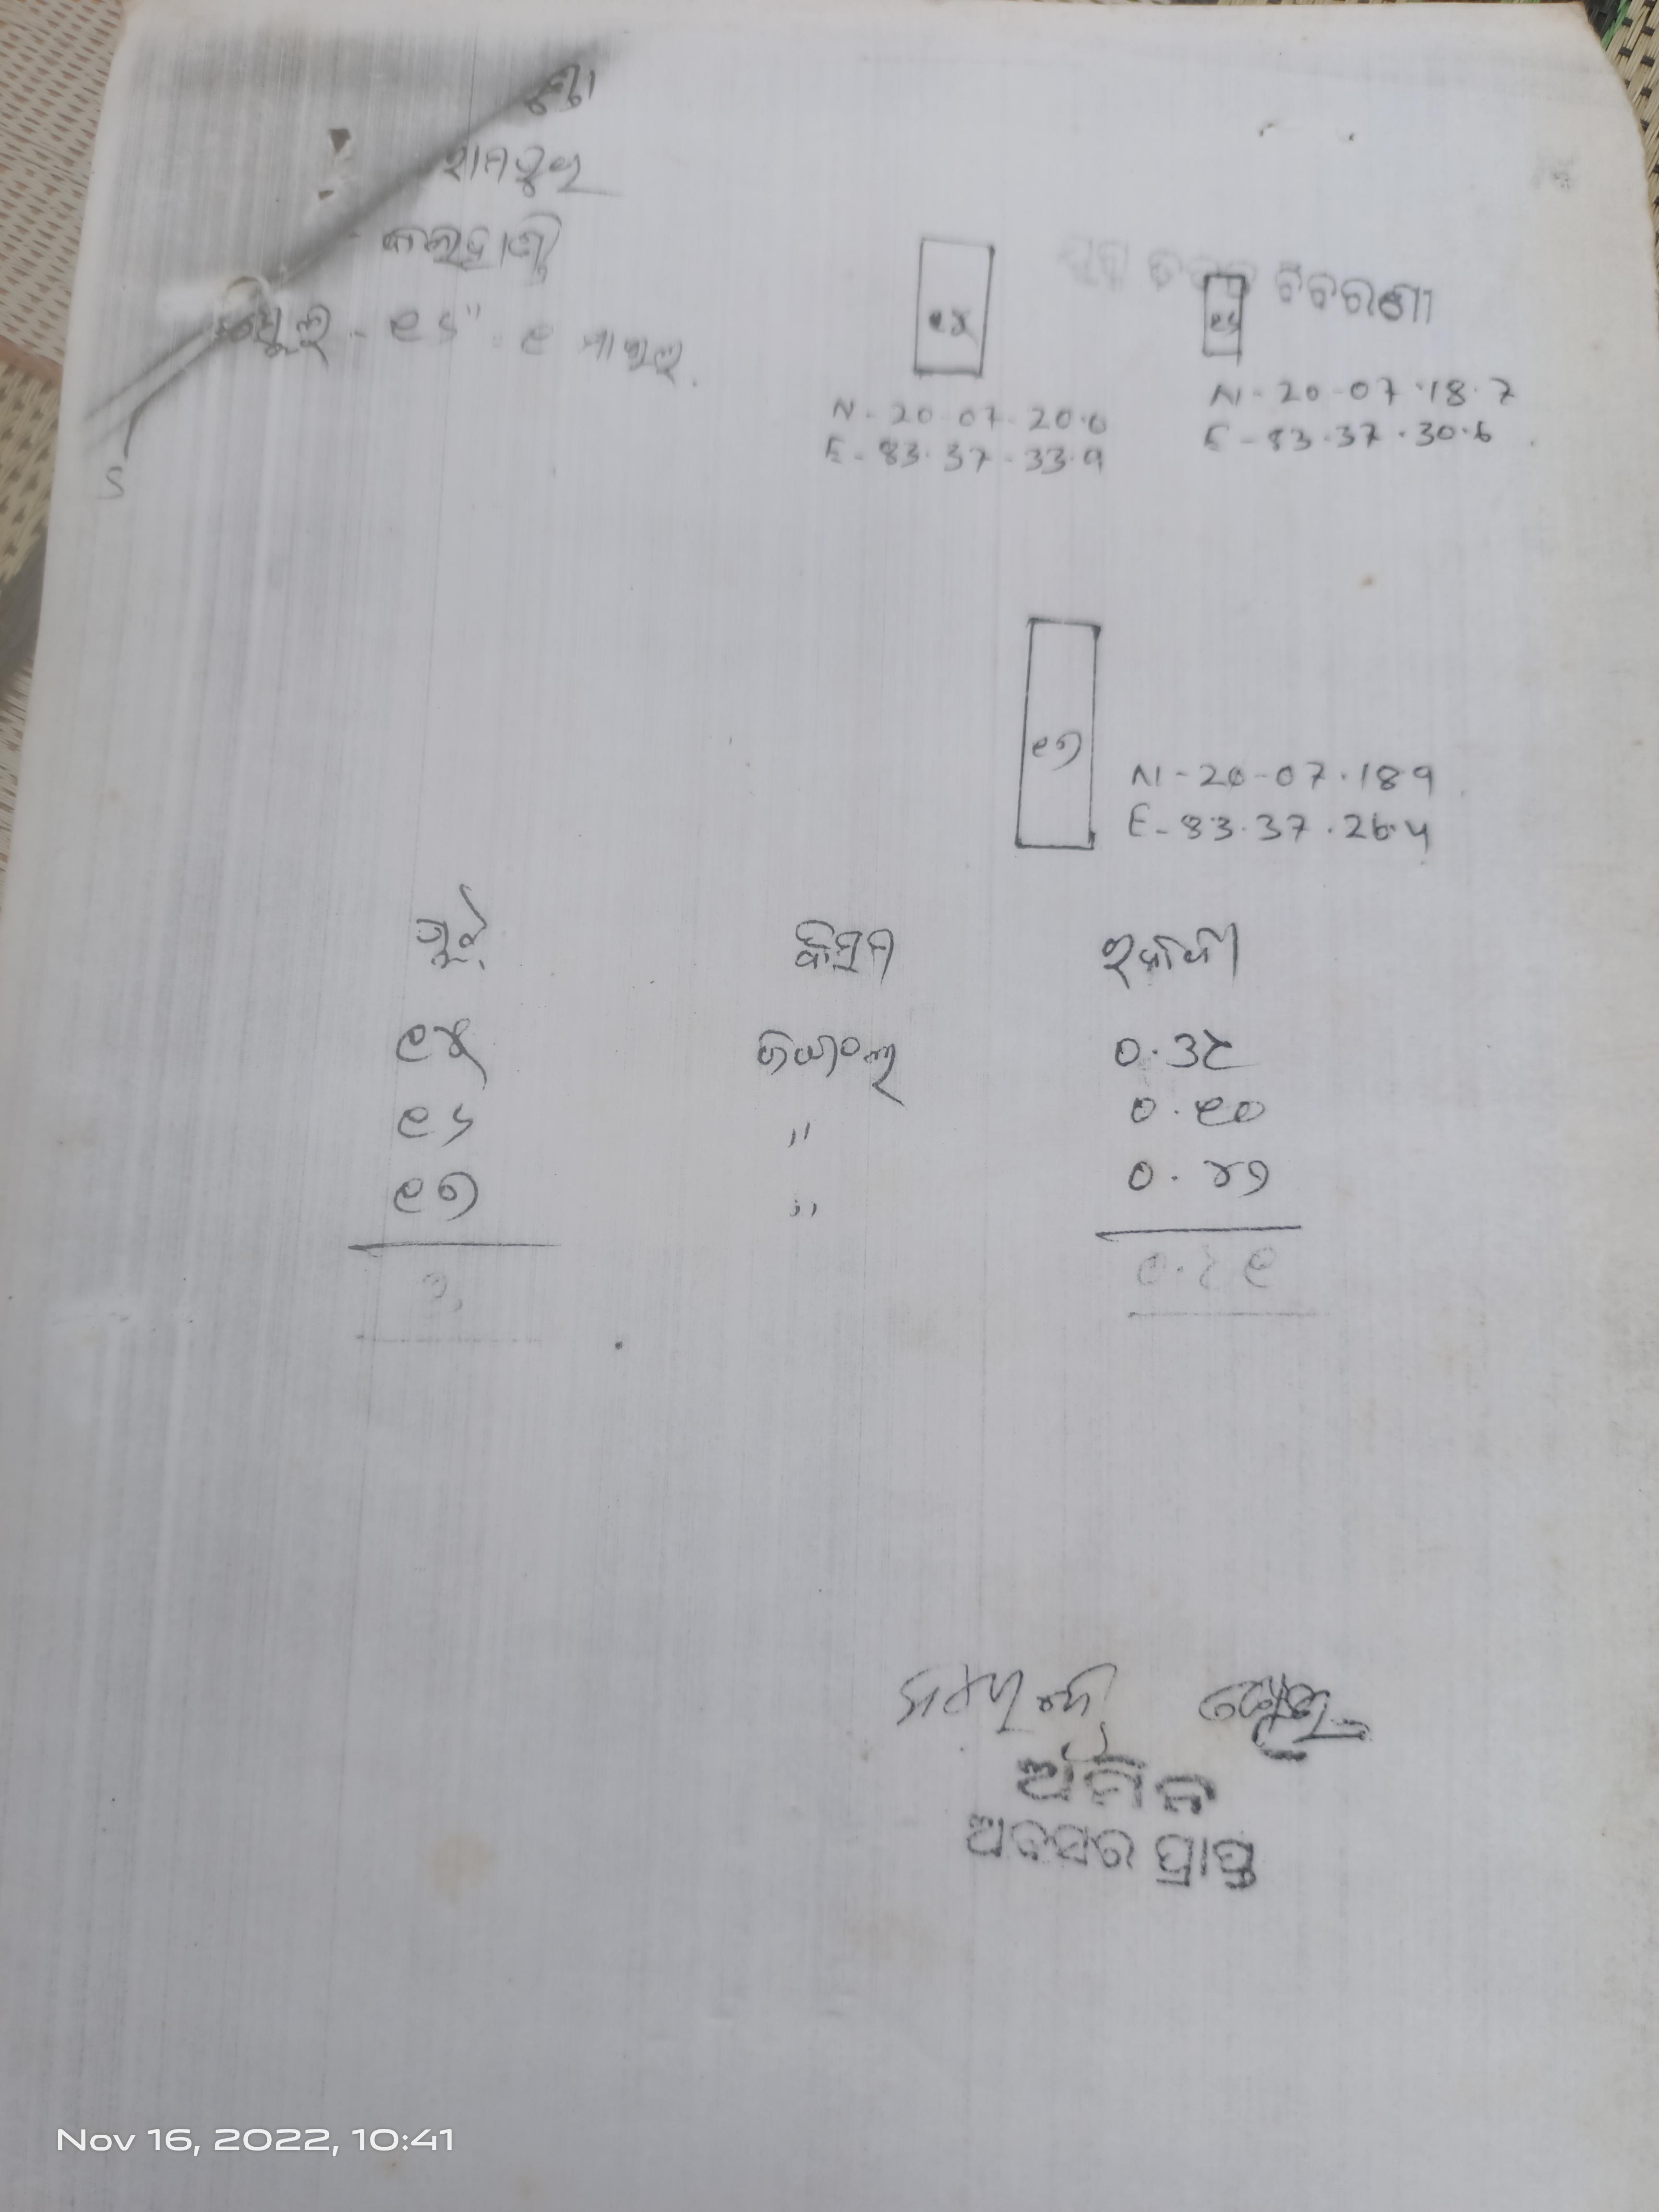 ରାମପୁର
କଳାହାଣ୍ଡି
ସ୍କେଲ - ୧୬" = ୧ ମାଇଲ.
ବିବରଣୀ
୧୫
୧୬
N - 20 - 07 - 20.0
E - 83 - 37 - 33.9
N - 20 - 07 - 18.7
E - 83 - 37 - 30.6
୧୭
N - 20 - 07 - 18.9
E - 83 - 37 - 26.4
S
ପ୍ଲଟ କିସମ ରକବା
୧୫ 0.୩୪
୧୬ " 0.୧୦
୧୭ " 0.୪୭
୦.୯୧
ଅମିନ
ଅବସର ପ୍ରାପ୍ତ
Nov 16, 2022, 10:41